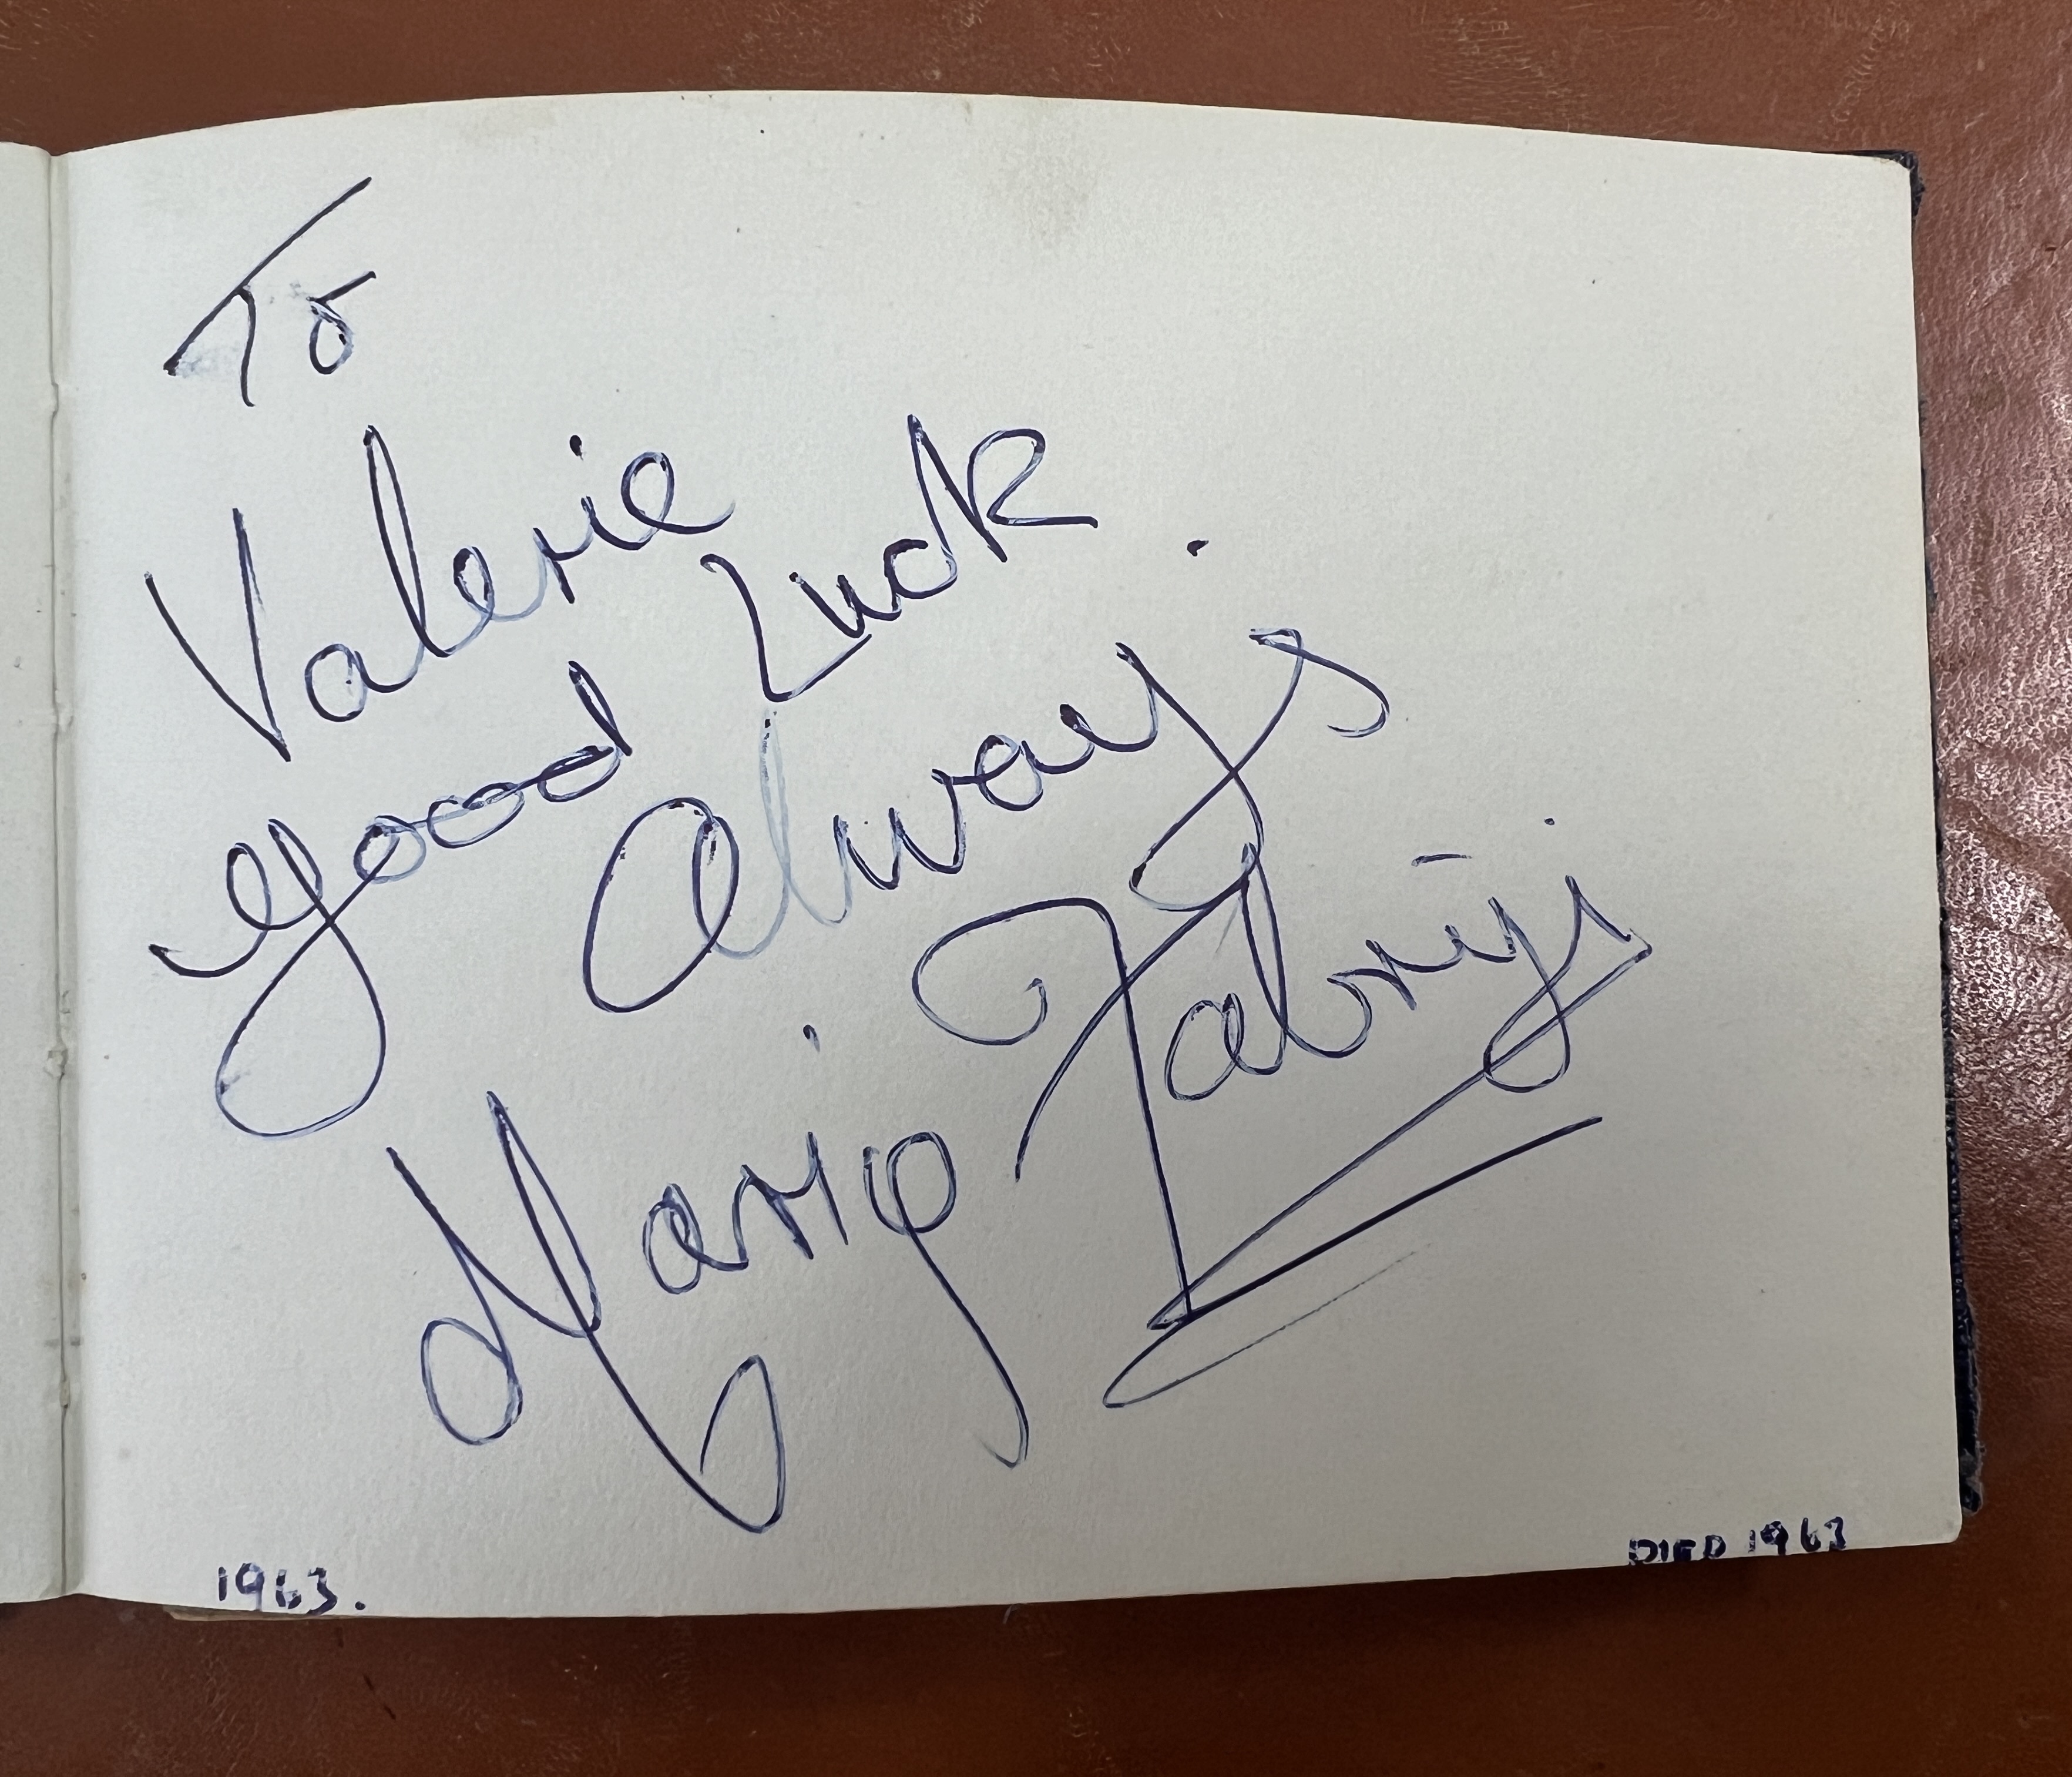 To
Valerie
good Luck.
always
Mario Fabrizi
1963.
DIED 1963